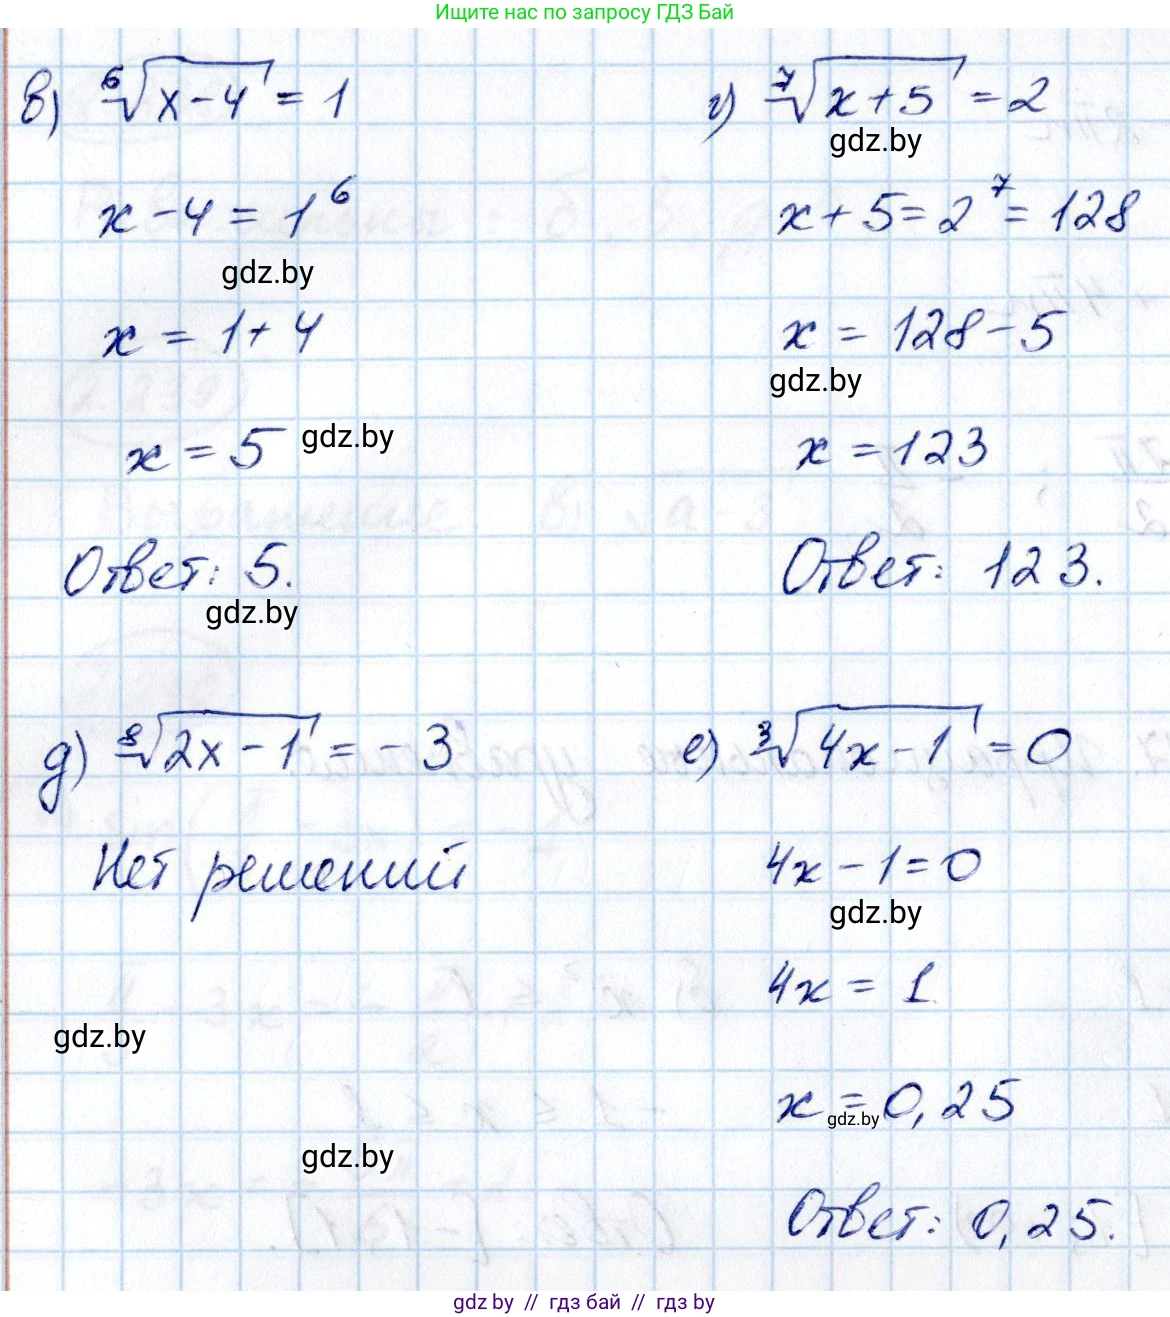 Ищите нас по запросу ГДЗ Бай
в) ⁶√(x-4) = 1
x-4 = 1⁶
gdz.by
x = 1+4
x = 5
gdz.by
Ответ: 5.
gdz.by
г) ⁷√(x+5) = 2
gdz.by
x+5 = 2⁷ = 128
x = 128-5
gdz.by
x = 123
Ответ: 123.
д) ⁸√(2x-1) = -3
Нет решений
gdz.by
gdz.by
е) ³√(4x-1) = 0
4x-1=0
gdz.by
4x = 1
x = 0,25
gdz.by
Ответ: 0,25.
gdz by // гдз бай // гдз by